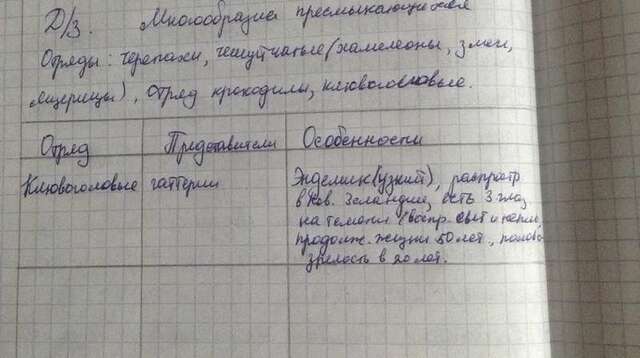 Д/З. Многообразие пресмыкающихся
Отряды: черепахи, чешуйчатые (хамелеоны, змеи,
ящерицы), отряд крокодилы, клювоголовые.
Отряд Представители Особенности
Клювоголовые гаттерии Эндемик (узкий), распростр
в Нов. Зеландии, есть 3 глаз
на темени (воспр. свет и
продолж. жизни 50 лет., полов
зрелость в 20 лет.